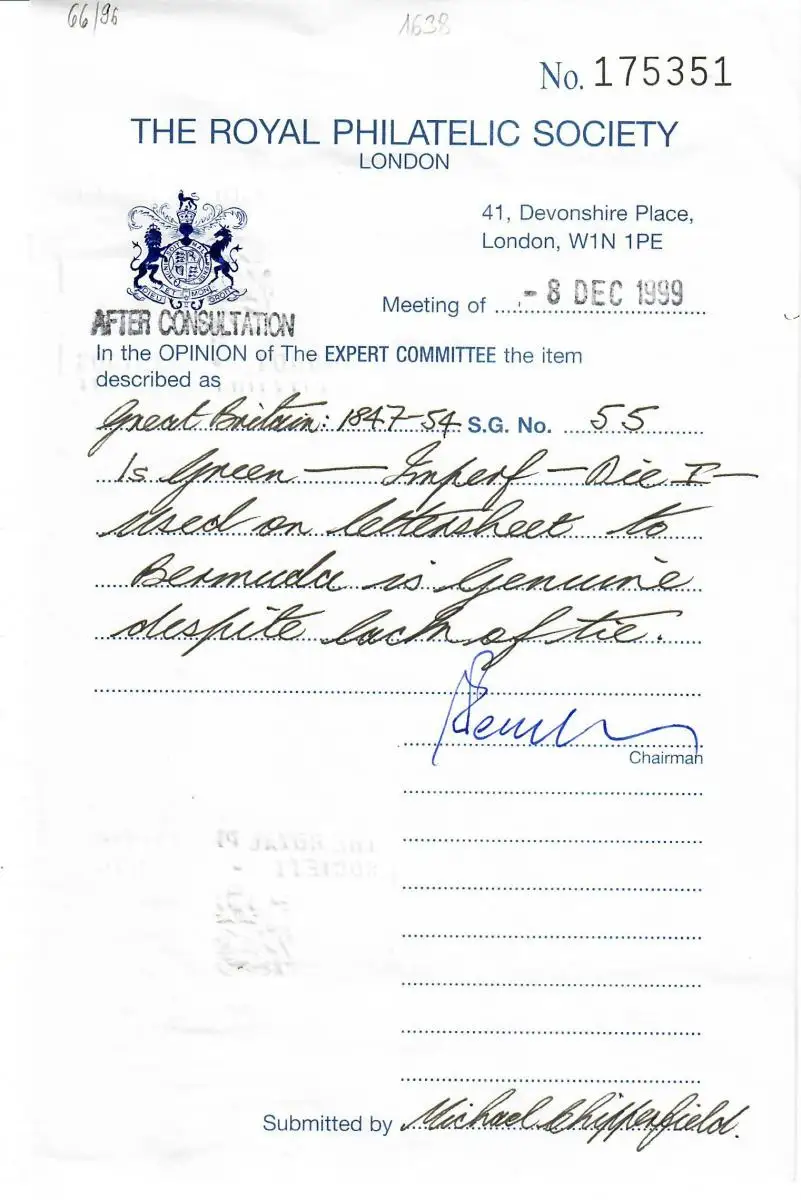 66/96
1638
No. 175351
THE ROYAL PHILATELIC SOCIETY
LONDON
41, Devonshire Place,
London, W1N 1PE
Meeting of - 8 DEC 1999
AFTER CONSULTATION
In the OPINION of The EXPERT COMMITTEE the item
described as
Great Britain: 1847-54 S.G. No. 55
1s Green — Imperf — Die I —
used on lettersheet to
Bermuda is genuine
despite lack of tie.
Chairman
Submitted by Michael Chipperfield.